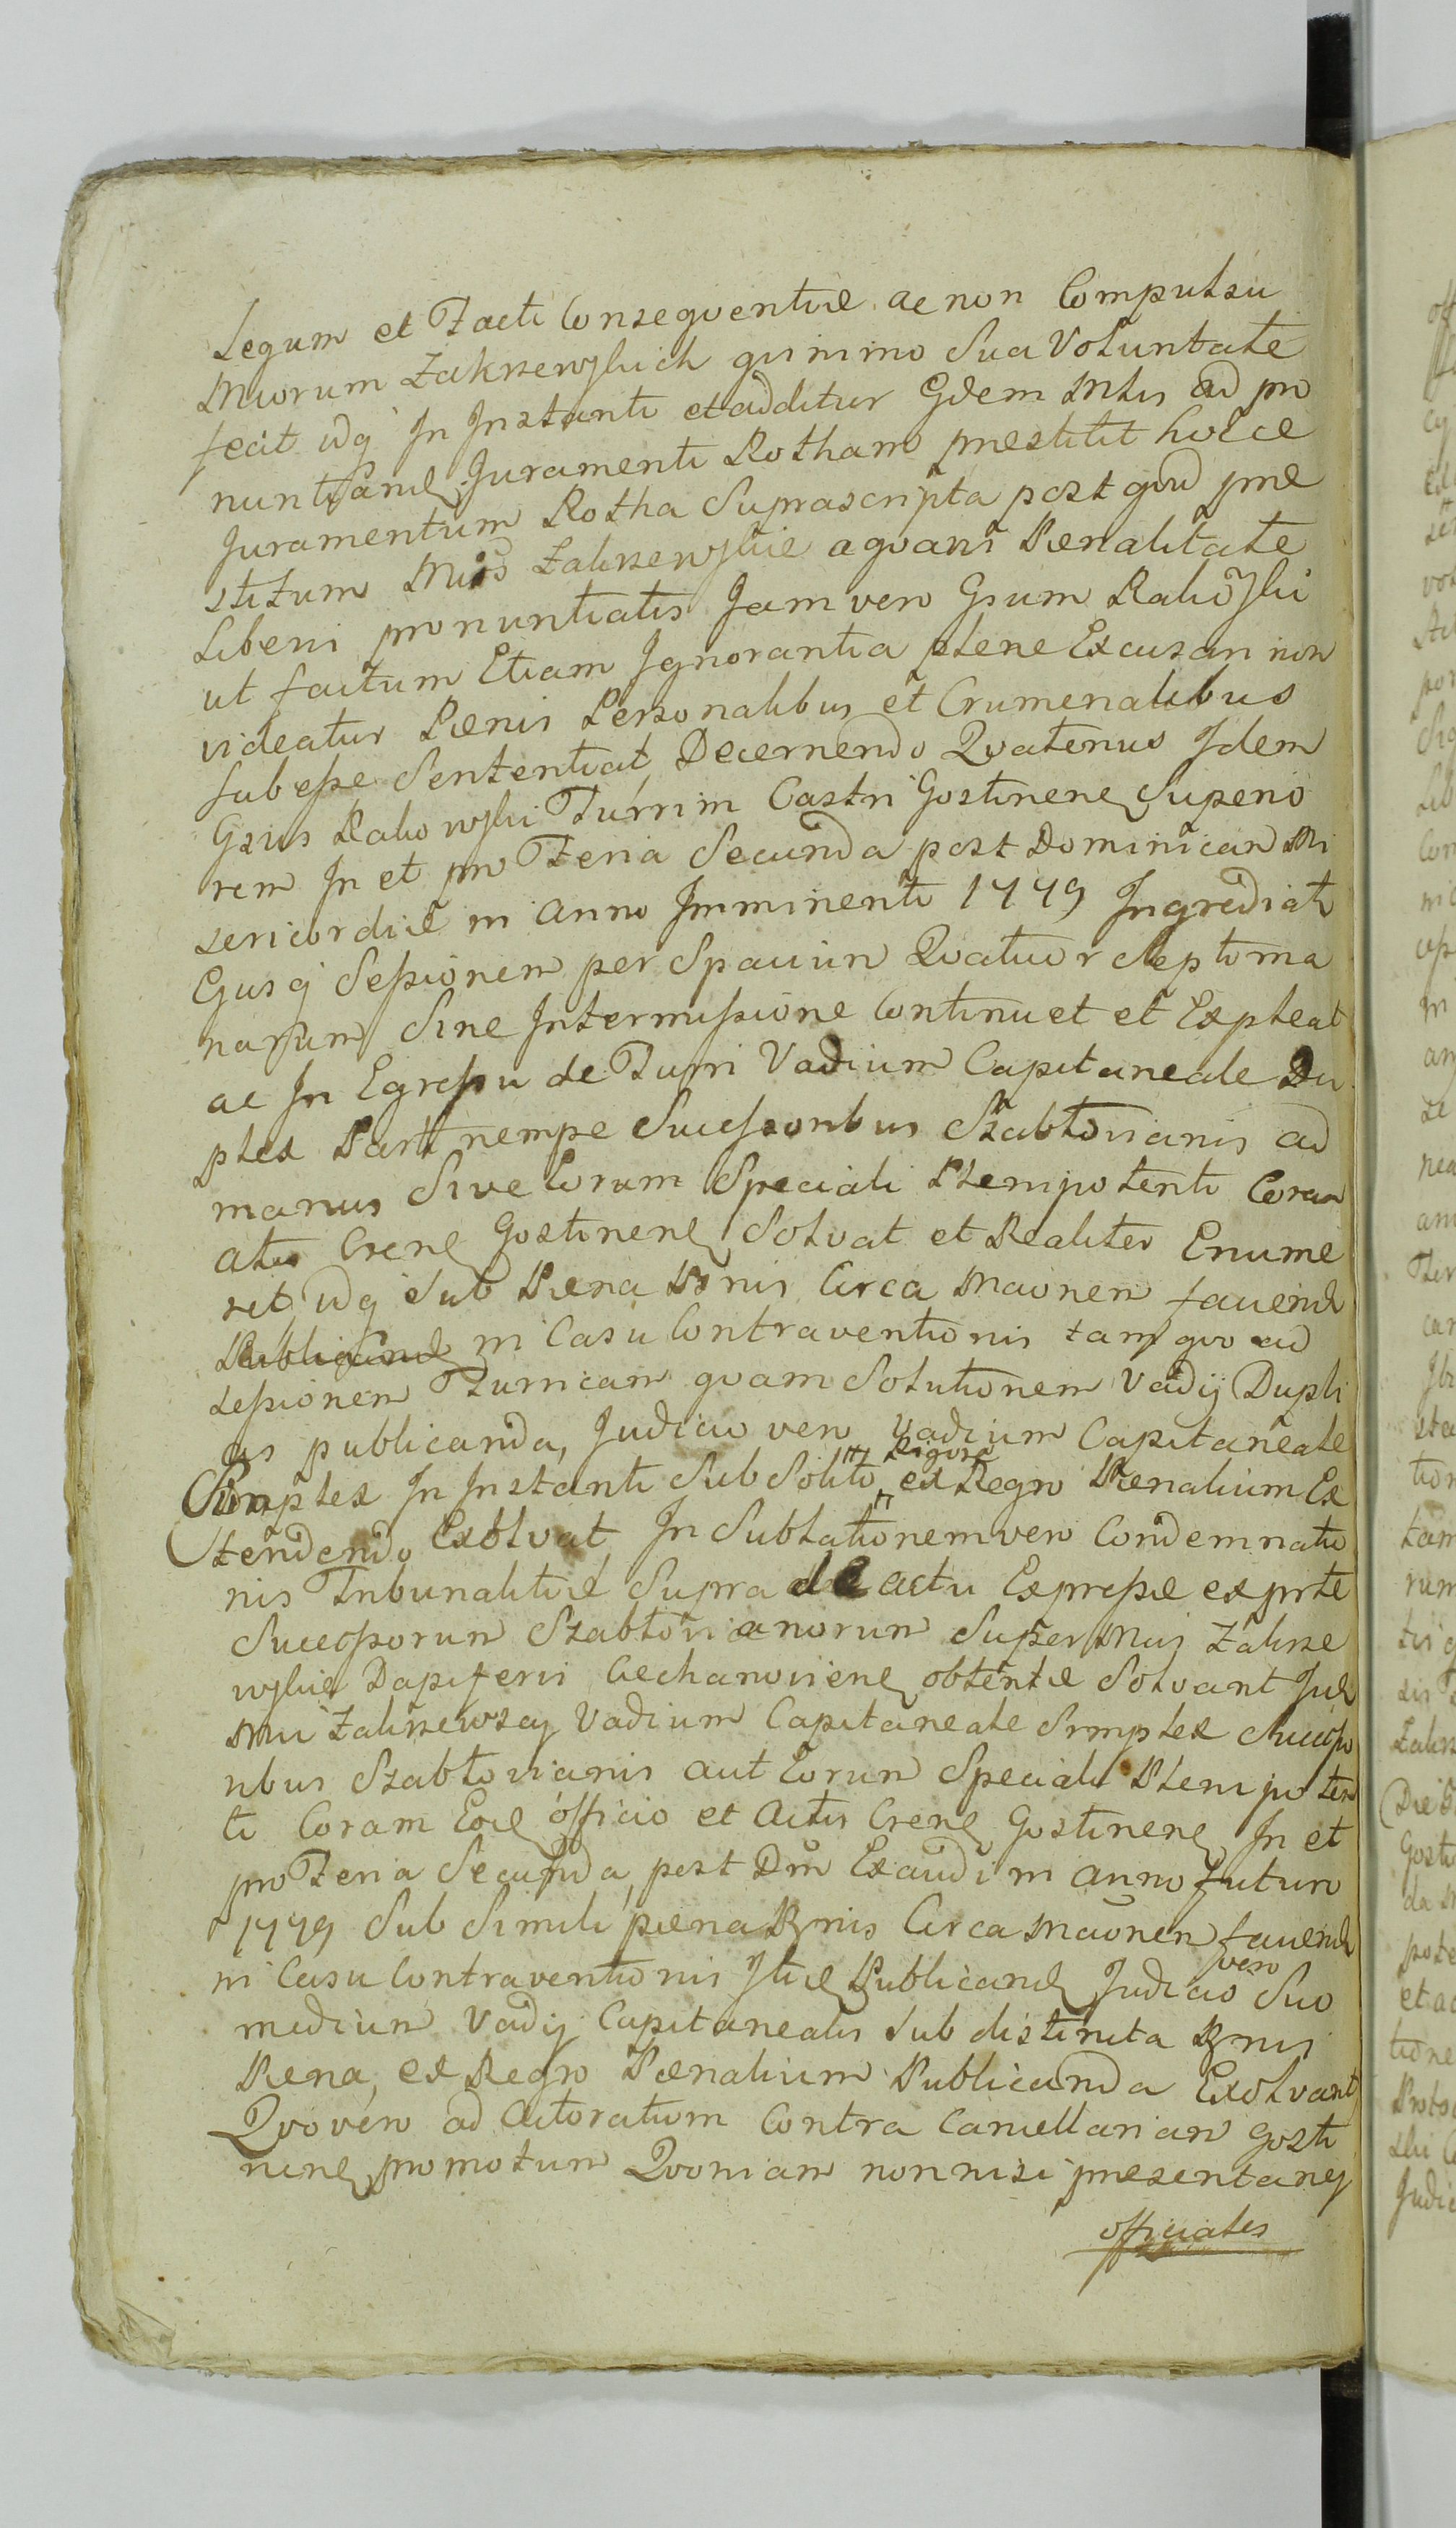 Legum et Facti Conseqventiæ ac non Compulsu
Mĩorum Zakrzewskich qũinimo Sua Voluntate
fecit idq̃ In Instanti et additur Gdem Mtis ad pro
nuntiand Juramenti Rotham præstitit hocce
Juramentum Rotha Suprascripta post qvod præ
stitum Zakrzewskie aqvavis Pœnalitate
Liberi pronuntiatis Jam vero Gsum Rakowski
ut factum Etiam Ignorantia plene Excusari non
videatur Pœnis Personalibus et Crumenalibus
Subesse Sententiat, Decernendo Qvatenus Idem
Gsus Rakowski Turrim Castri Gostinen Superio
rem In et pro Feria Secunda post Dominicam Mi
sericordiæ in Anno Imminenti 1779 Ingrediat
Ejusq̃ Sessionem per Spatium Qvatuor Septima
narum Sine Intermissione Continuet et Expleat
ac In Egressu de Turri Vadium Capitaneale Du
plex Parti nempe Sucessoribus Szabłovianis ad
manus Sive Eorum Speciali Plenipotenti Coram
Actis Cren Gostinen Solvat et Realiter Enume
ret, idq̃ Sub Pœna Bñnis Circa Maõnem faciend
Publicand in Casu Contraventionis tam qvo ad
Sessionem Turricam qvam Solutionem Vadij Dupli
cis publicanda, Judicio vero Vadium Capitaneale
Simplex In Instanti Sub Solito Rigore ex Regro Pœnalium Ex
tendendo Exolvat In Sublationem vero Condemnatio
nis Tribunalitiæ Supra de actu Expressæ ex prte
Sucessorum Szabłovianorum Super Mũj Zakrze
wskie Dapiferis Ciechanovien obtentæ Solvant Iid
Mũi Zakrzewscy Vadium Capitaneale Simplex Sucesso
ribus Szabłovianis aut Eorum Speciali Plenipoten
ti Coram Eod officio et Actis Cren Gostinen In et
pro Feria Secunda, post Dm̃ Exaudi in Anno Futuro
1779 Sub Simili pœna Bñnis Circa Maõnem faciend
in Casu Contraventionis Itid Publicand Judicio vero Suo
medium Vadij Capitanealis Sub distincta Bñnis
Pœna, ex Regro Pœnalium Publicanda Exolvant
Qvo vero ad Actoratum Contra Cancellariam Gosti
nen promotum Qvoniam nonnisi præsentanej
officiales